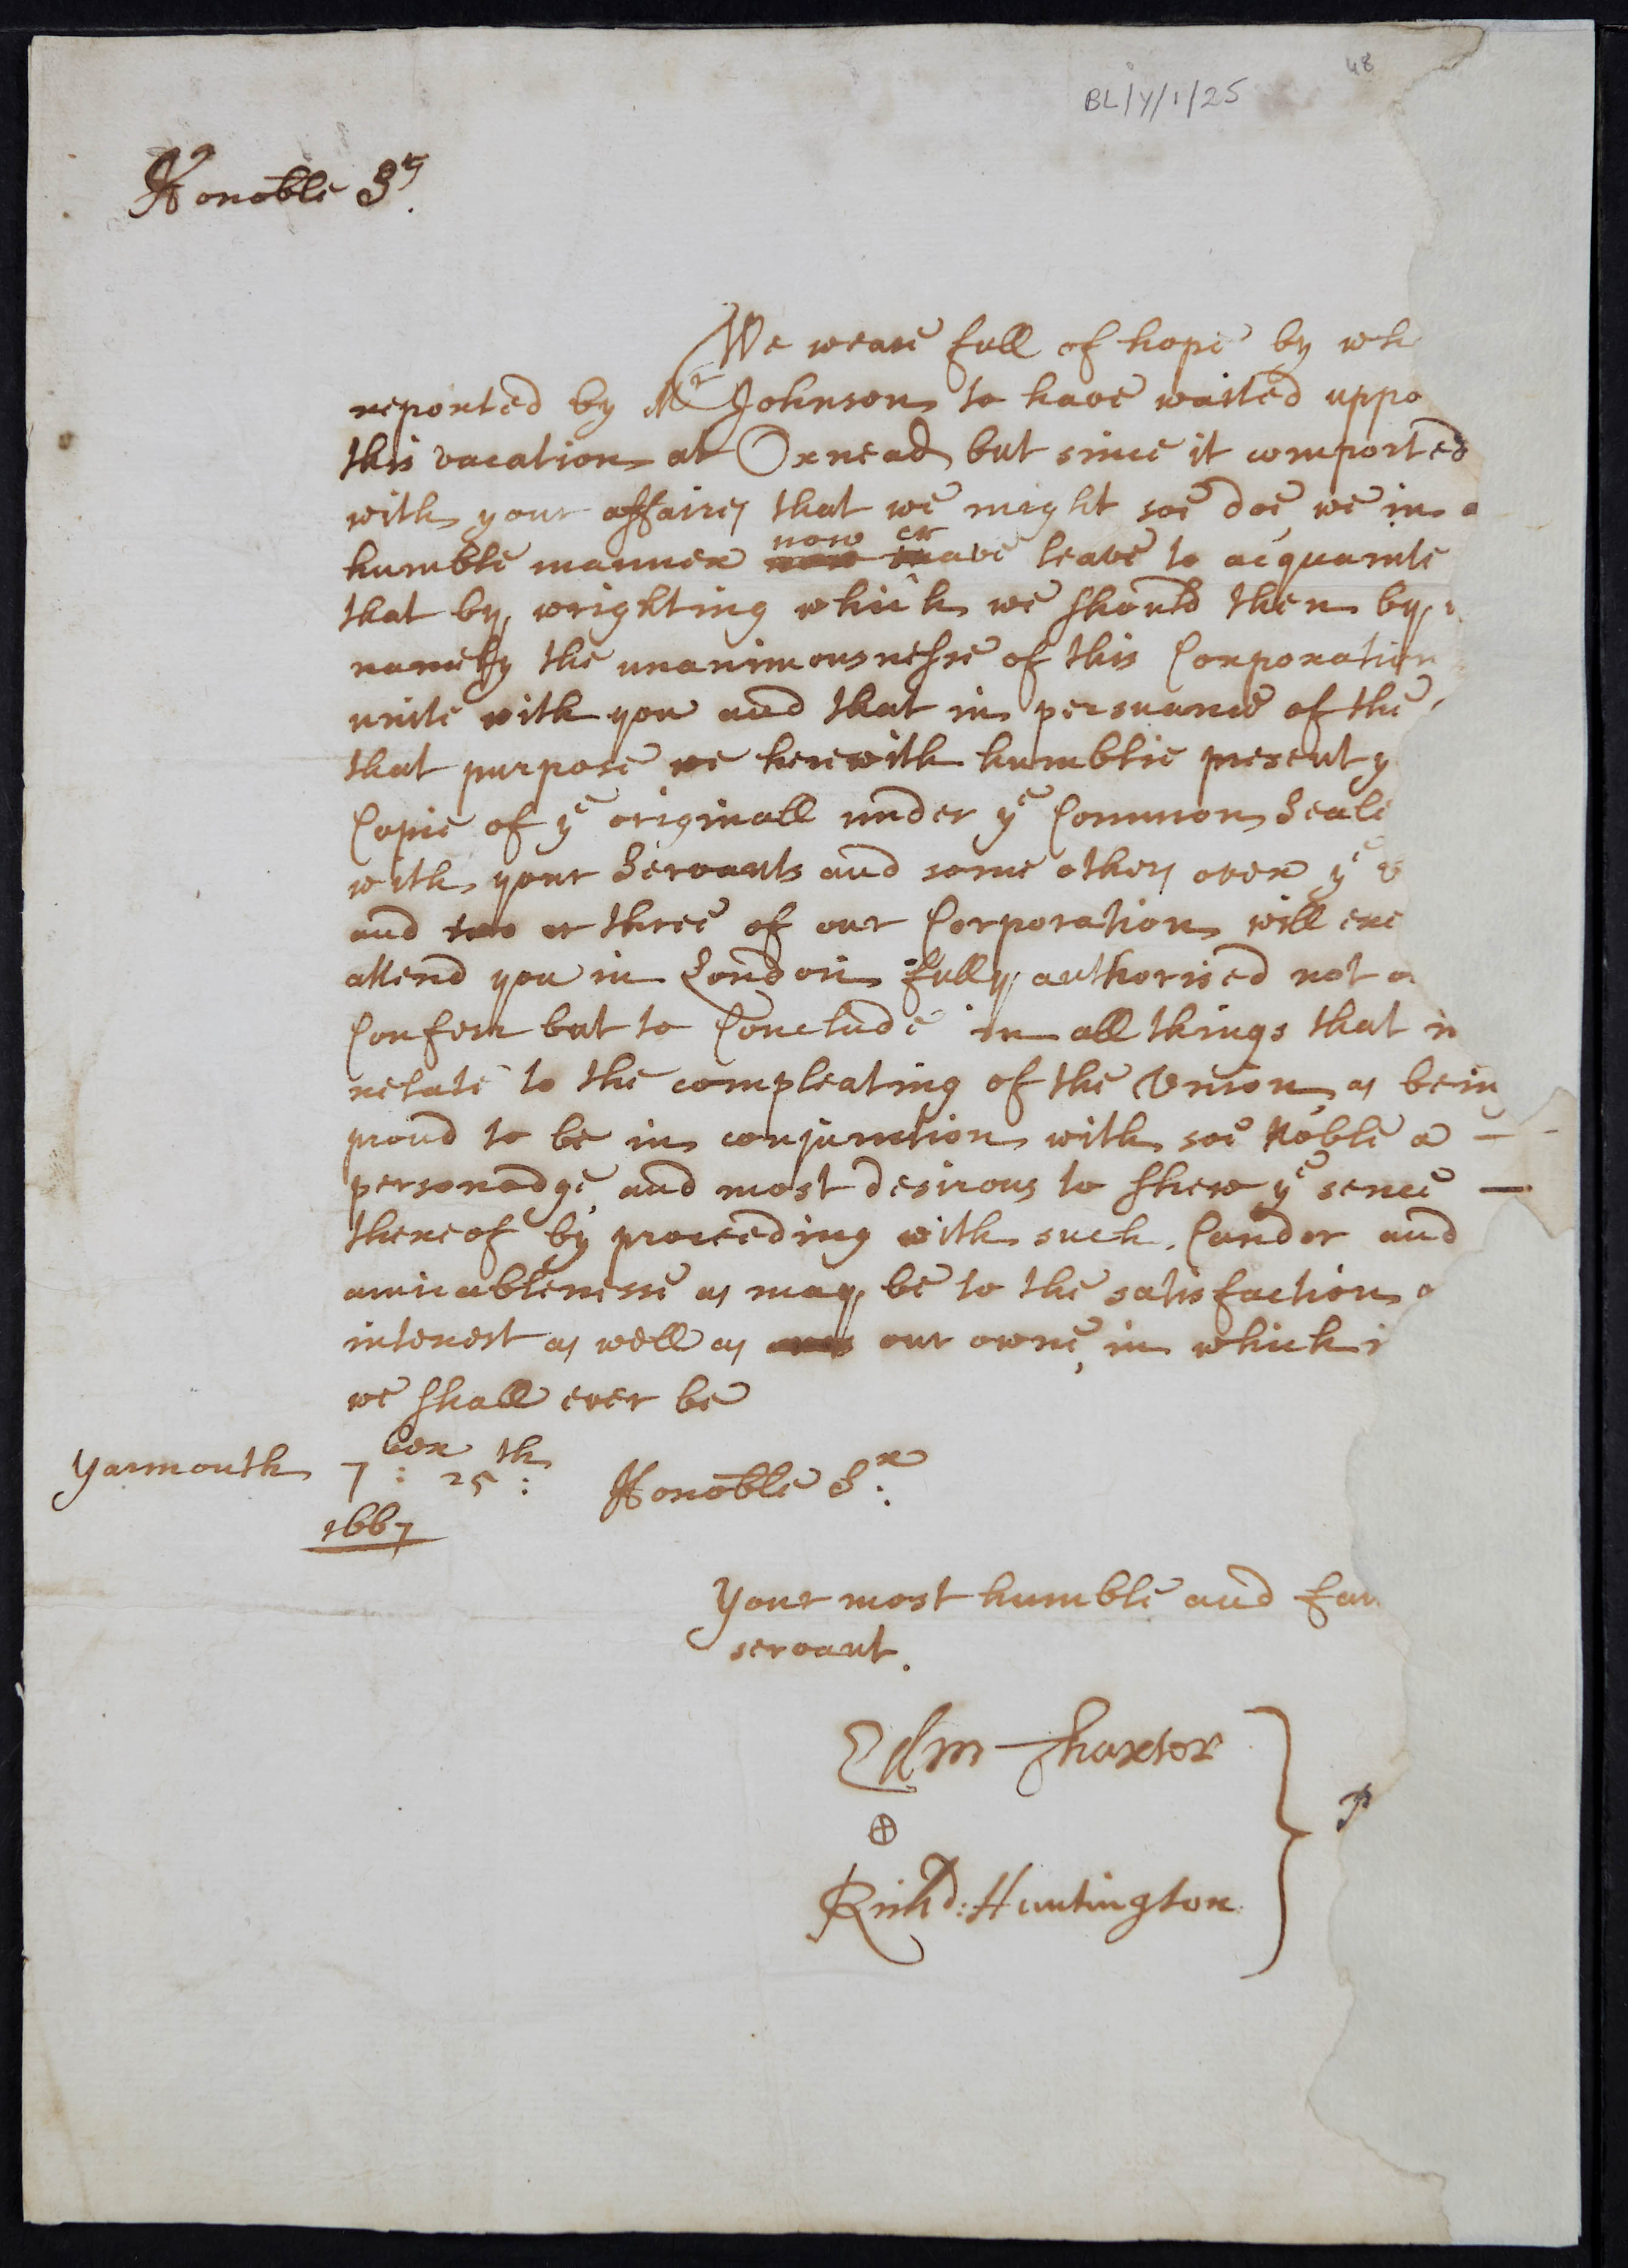 48
BL/Y/1/25
Honoble Sr.
We weare full of hope by wh
reported by Mr Johnson to have waited uppo
this vacation at Oxnead, but since it comported
with your affaires that we might soe doe we in
now cr
humble manner ave leave to acquainte
that by wrighting which we should then by
namely the unanimousnesse of this Corporation
unite with you and that in persuance of the
that purpose we herewith humblie present y
Copie of ye originall under ye Common Seale
with your Servants and some others over ye
and two or three of our Corporation will ere
attend you in London fully authorised not o
Conferr but to Conclude in all things that
relate to the compleating of the Union as bein
proud to be in conjunction with soe Noble a —
personadge, and most desirous to shew ye sence —
thereof by proceeding with such Candor and
amicablenesse as may be to the satisfaction o
interest as well as our owne, in which
we shall ever be
Yarmouth 7ber: 25th:
1667
Honoble Sr.
Your most humble and fai
servant.
Edm Thaxter
Richd: Huntington